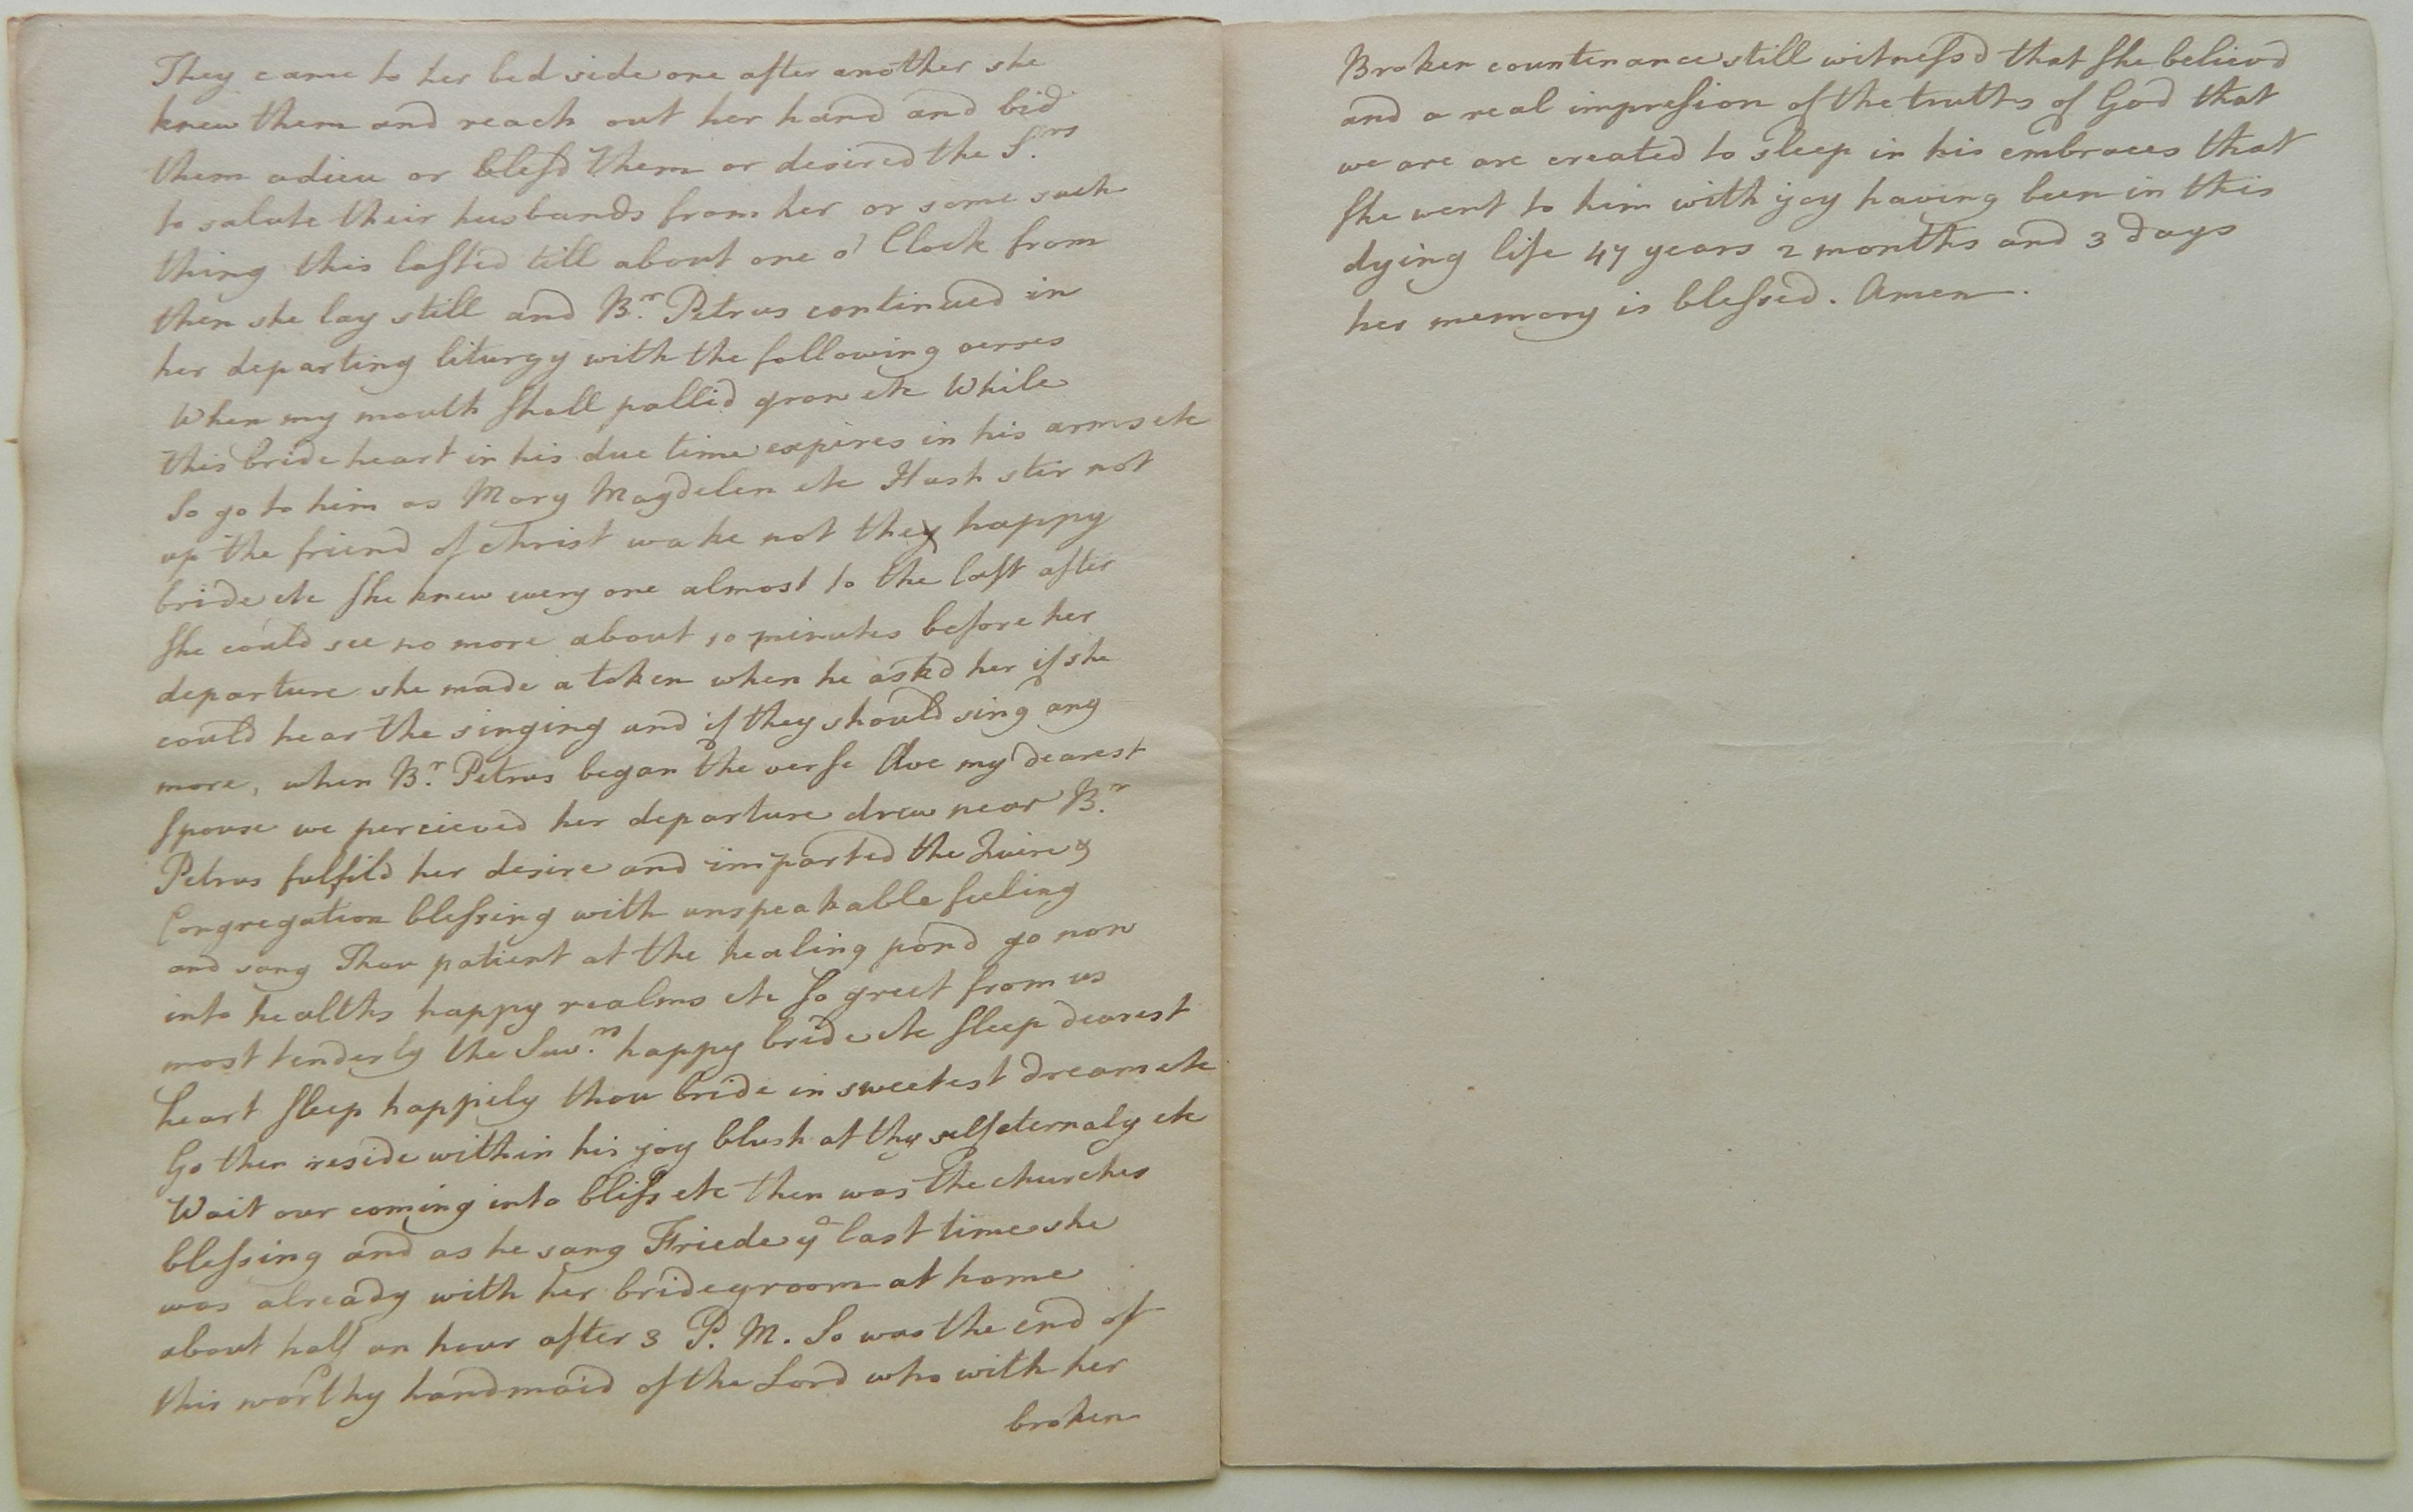 They came to her bed side one after another she
knew them and reach out her hand and bid
them adieu or blesſd them or desired the S.rs
to salute their husbands from her or some such
thing this laſted till about one o' Clock from
then she lay still and B.r Petrus continued in
her departing liturgy with the following verses
When my mouth ſhall pallid grow etc While
this bride heart in his due time expires in his arms etc
So go to him as Mary Magdelen etc Hush stir not
up the friend of christ wake not they happy
bride etc ſhe knew every one almost to the laſt after
ſhe could see no more about 10 minutes before her
departure she made a token when he askd her if she
could hear the singing and if they should sing any
more, when B.r Petrus began the verſe Ave my dearest
ſpouse we percieved her departure drew near B.r
Petrus fulfild her desire and imparted the Quire &
Congregation bleſsing with unspeakable feeling
and sang Thou patient at the healing pond go now
into healths happy realms etc ſo greet from us
most tenderly the Sav.rs happy bride etc ſleep dearest
heart ſleep happily thou bride in sweetest dream etc
Go then reside within his joy blush at thy self eternaly etc
Wait our coming into bliſs etc then was the churches
bleſsing and as he sang Friede ye last time she
was already with her bridegroom at home
about half an hour after 3 P. M. So was the end of
this worthy handmaid of the Lord who with her
broken
Broken countenance still witneſsd that ſhe believd
and a real impreſion of the truths of God that
we are are created to sleep in his embraces that
ſhe went to him with joy having been in this
dying life 47 years 2 months and 3 days
her memory is bleſsed. Amen.